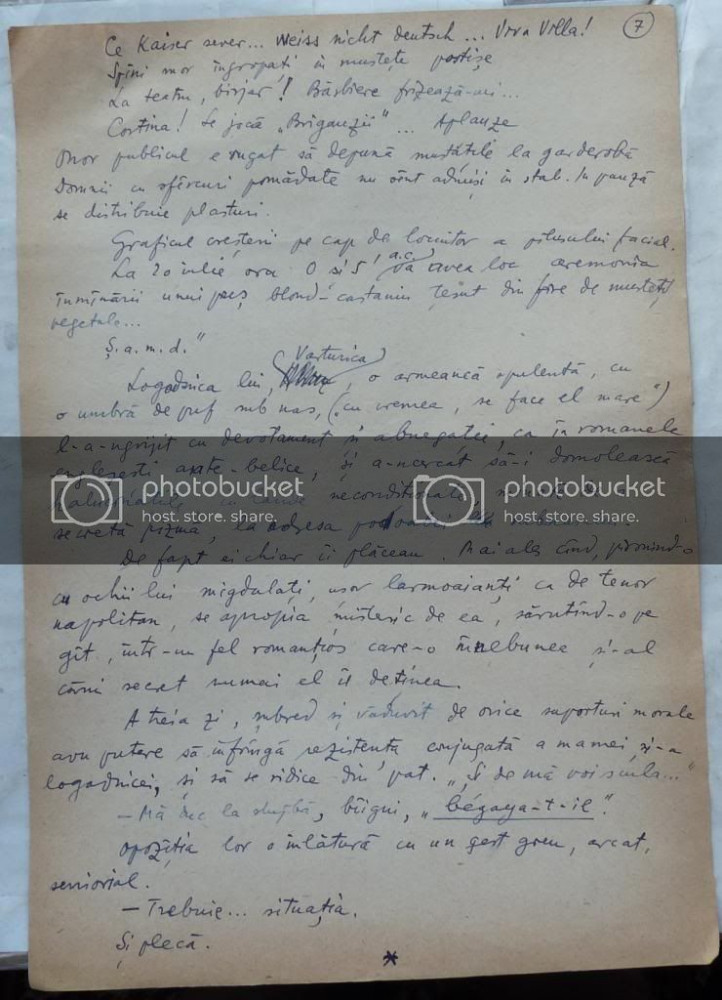 7
Ce Kaiser sever... Weiss nicht deutsch... Viva Villa!
Spini mor îngropați în mustețe postișe
La teatru, birjar! Bărbiere frizează-mi...
Cortina! Se joacă „Briganzii"... Aplauze
Onor publicul e rugat să depună mustățile la garderobă
Domnii cu sfârcuri pomădate nu sînt admiși în stal. În pauză
se distribuie plasturi.
Graficul creșterii pe cap de locuitor a pilusului facial.
La 20 iulie a.c. ora 0 și 5' va avea loc ceremonia
înmînării unui peș blond-castaniu țesut din fire de mustăți
vegetale...
Ș.a.m.d."
Logodnica lui, Varturica, o armeancă opulentă, cu
o umbră de puf sub nas, („cu vremea, se face el mare")
l-a-ngrijit cu devotament și abnegație, ca în romanele
englezești ante-belice, și a-ncercat să-i domolească
secretă pizmă, la adresa
De fapt ei chiar îi plăceau. Mai ales cînd, privind-o
cu ochii lui migdalați, ușor larmoaianți ca de tenor
napolitan, se apropia misteric de ea, sărutînd-o pe
gît, într-un fel romanțios care-o înnebunea și-al
cărui secret numai el îl deținea.
A treia zi, șubred și văduvit de orice suporturi morale
avu putere să înfrîngă rezistența conjugată a mamei și-a
logodnicei, și să se ridice din pat. „Și de mă voi scula..."
– Mă duc la slujbă, bîigui, „bégaya-t-il".
Opoziția lor o înlătură cu un gest greu, arcat,
seniorial.
– Trebuie... situația.
Și plecă.
*
photobucket
host. store. share.
photobucket
host. store. share.